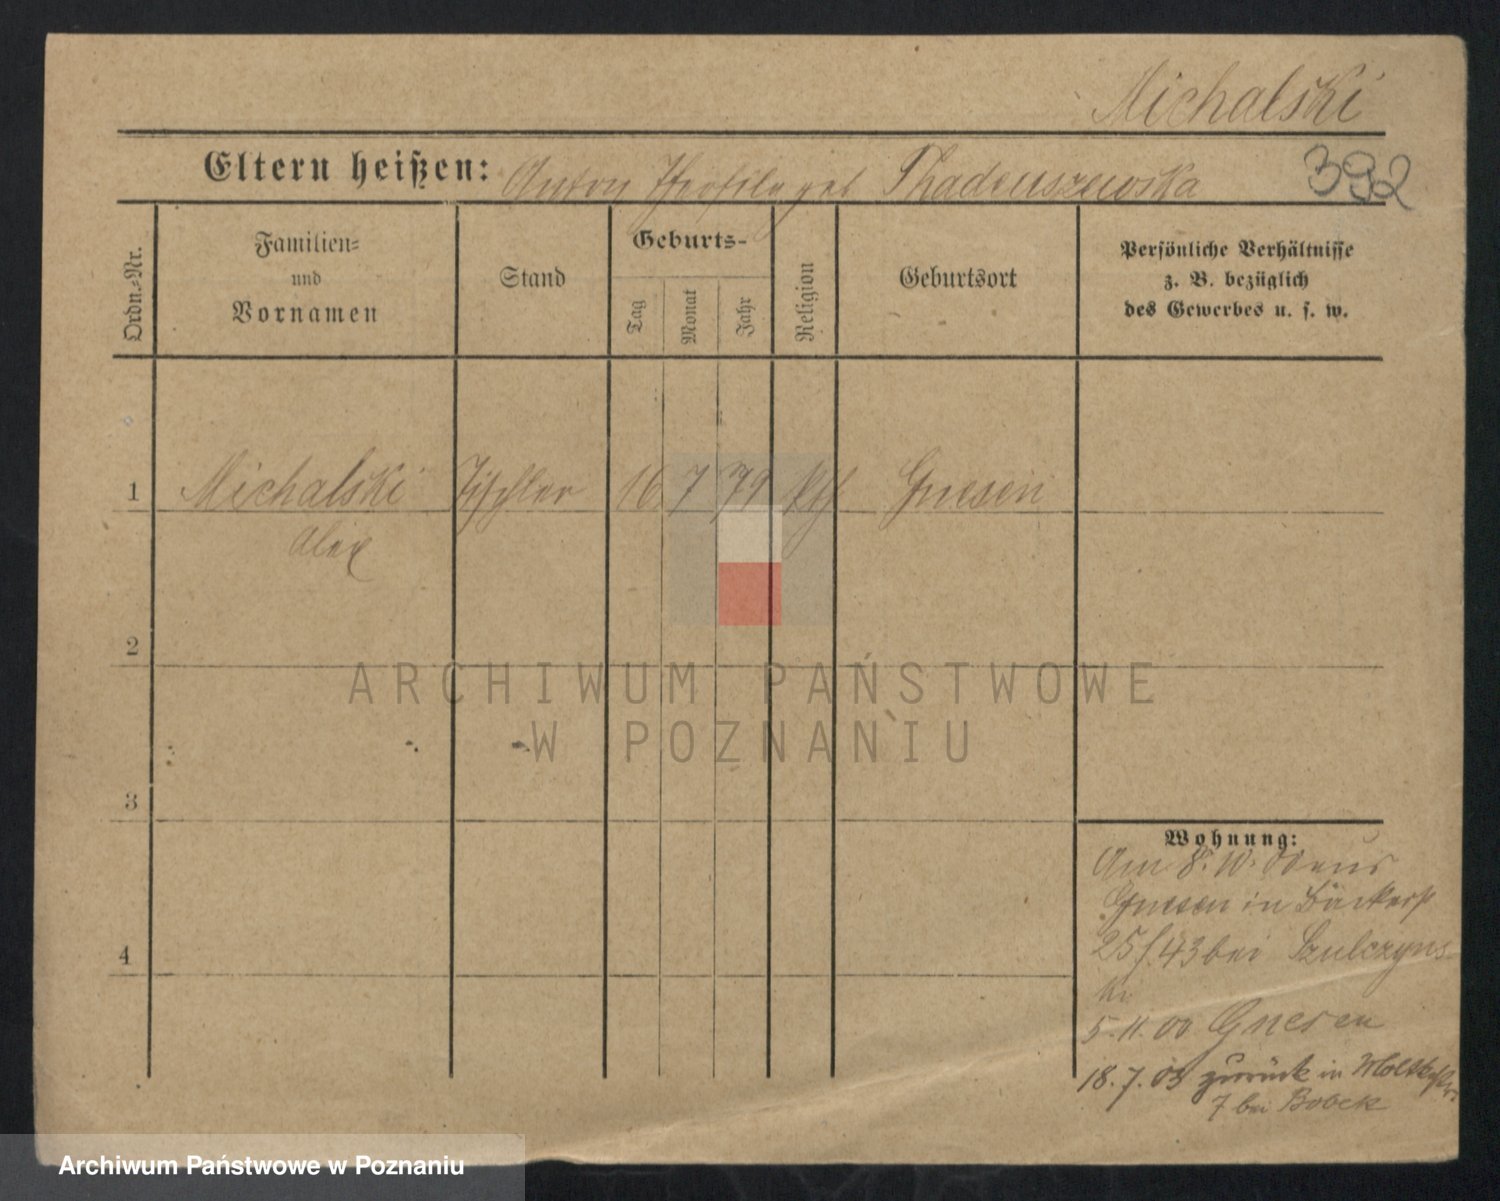 Michalski
Eltern heißen: Anton geb Thadeuszewska
392
Ordn.-Nr.
Familien-
und
Vornamen
Stand
Geburts-
Tag
Monat
Jahr
Religion
Geburtsort
Persönliche Verhältnisse
z. B. bezüglich
des Gewerbes u. s. w.
1 Michalski Tischler 16 7 79 kth Gnesen
Alex
2
3
4
ARCHIWUM PAŃSTWOWE
W POZNANIU
Wohnung:
Am 8. 10. aus
Gnesen in Bäckerst
25/.43 bei Szulczyns
ki
5. 11. 00 Gnesen
18. 7. 03 zurück in Moltkestr.
7 bei Bobek
Archiwum Państwowe w Poznaniu